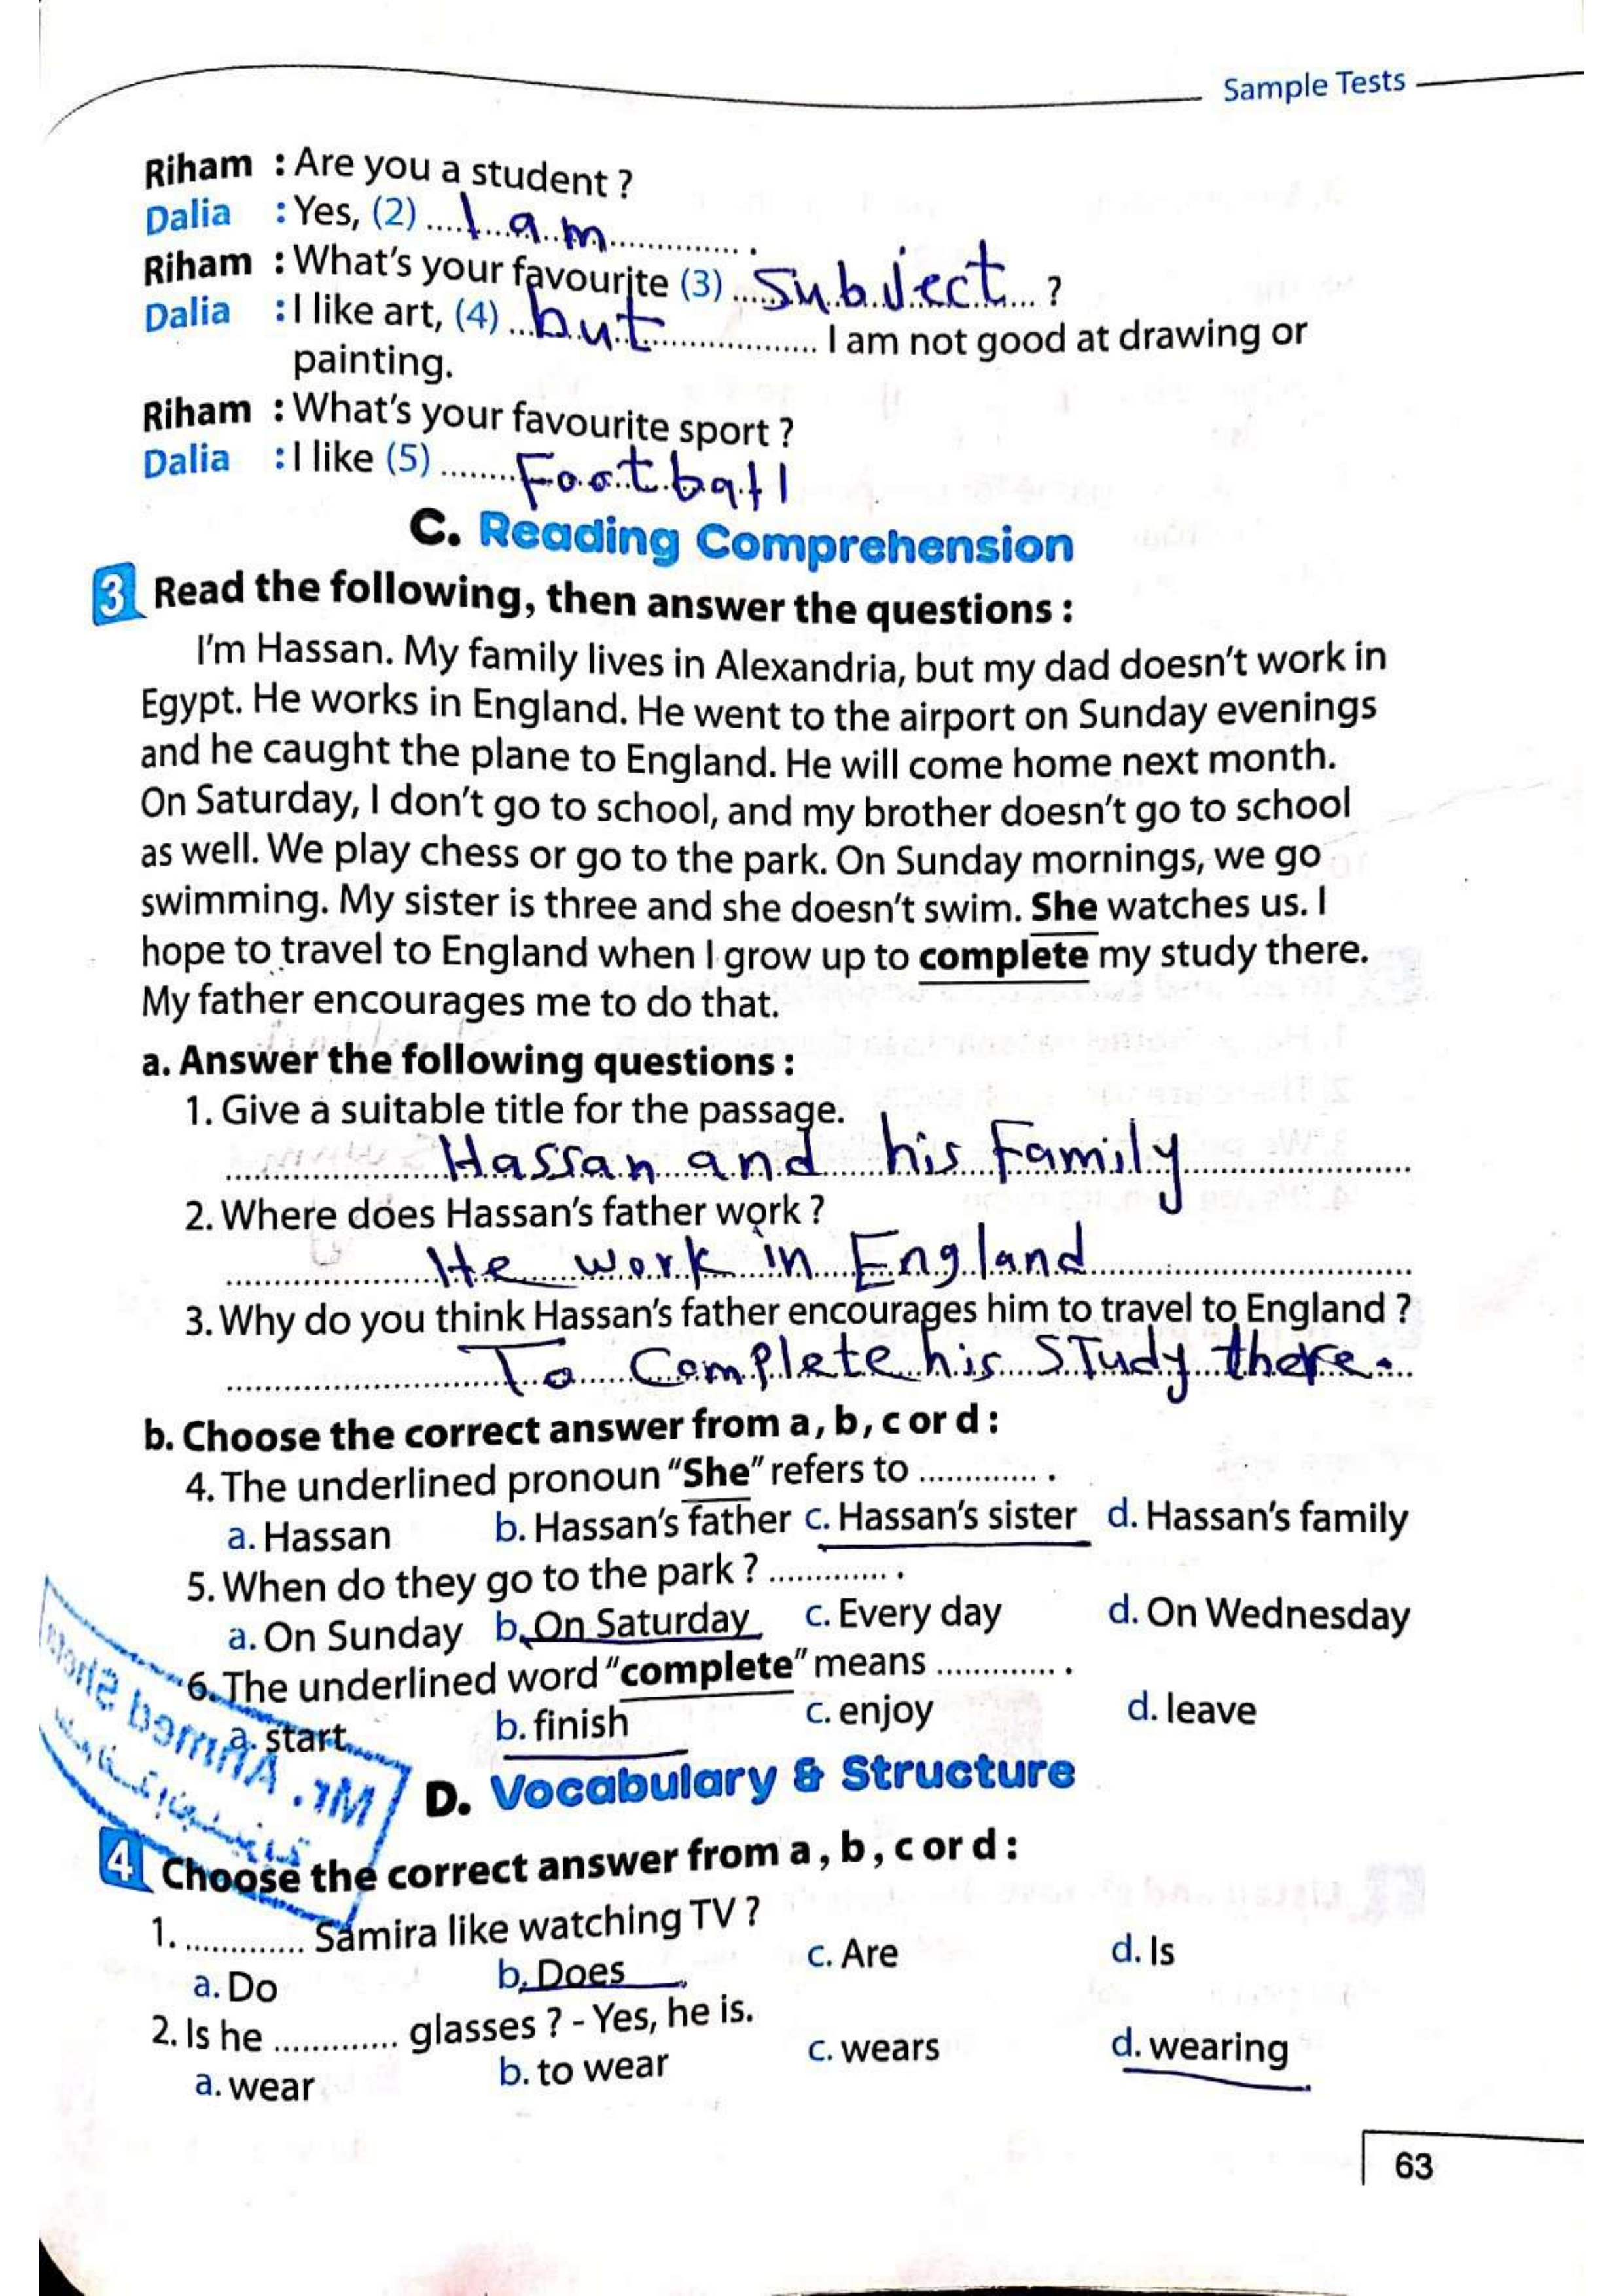 Sample Tests
Riham : Are you a student ?
Dalia : Yes, (2) ....I am.............. .
Riham : What's your favourite (3) ..Subject... ?
Dalia : I like art, (4) ...but............... I am not good at drawing or
painting.
Riham : What's your favourite sport ?
Dalia : I like (5) .......Football
C. Reading Comprehension
3 Read the following, then answer the questions :
I'm Hassan. My family lives in Alexandria, but my dad doesn't work in
Egypt. He works in England. He went to the airport on Sunday evenings
and he caught the plane to England. He will come home next month.
On Saturday, I don't go to school, and my brother doesn't go to school
as well. We play chess or go to the park. On Sunday mornings, we go
swimming. My sister is three and she doesn't swim. She watches us. I
hope to travel to England when I grow up to complete my study there.
My father encourages me to do that.
a. Answer the following questions :
1. Give a suitable title for the passage.
Hassan and his Family
2. Where does Hassan's father work ?
He work in England
3. Why do you think Hassan's father encourages him to travel to England ?
To Complete his STudy there.
b. Choose the correct answer from a, b, c or d :
4. The underlined pronoun "She" refers to ............. .
a. Hassan b. Hassan's father c. Hassan's sister d. Hassan's family
5. When do they go to the park ? ............. .
a. On Sunday b. On Saturday c. Every day d. On Wednesday
6. The underlined word "complete" means ............. .
a. start b. finish c. enjoy d. leave
Mr. Ahmed
D. Vocabulary & Structure
4 Choose the correct answer from a, b, c or d :
1. ............. Samira like watching TV ?
a. Do b. Does c. Are d. Is
2. Is he ............. glasses ? - Yes, he is.
a. wear b. to wear c. wears d. wearing
63